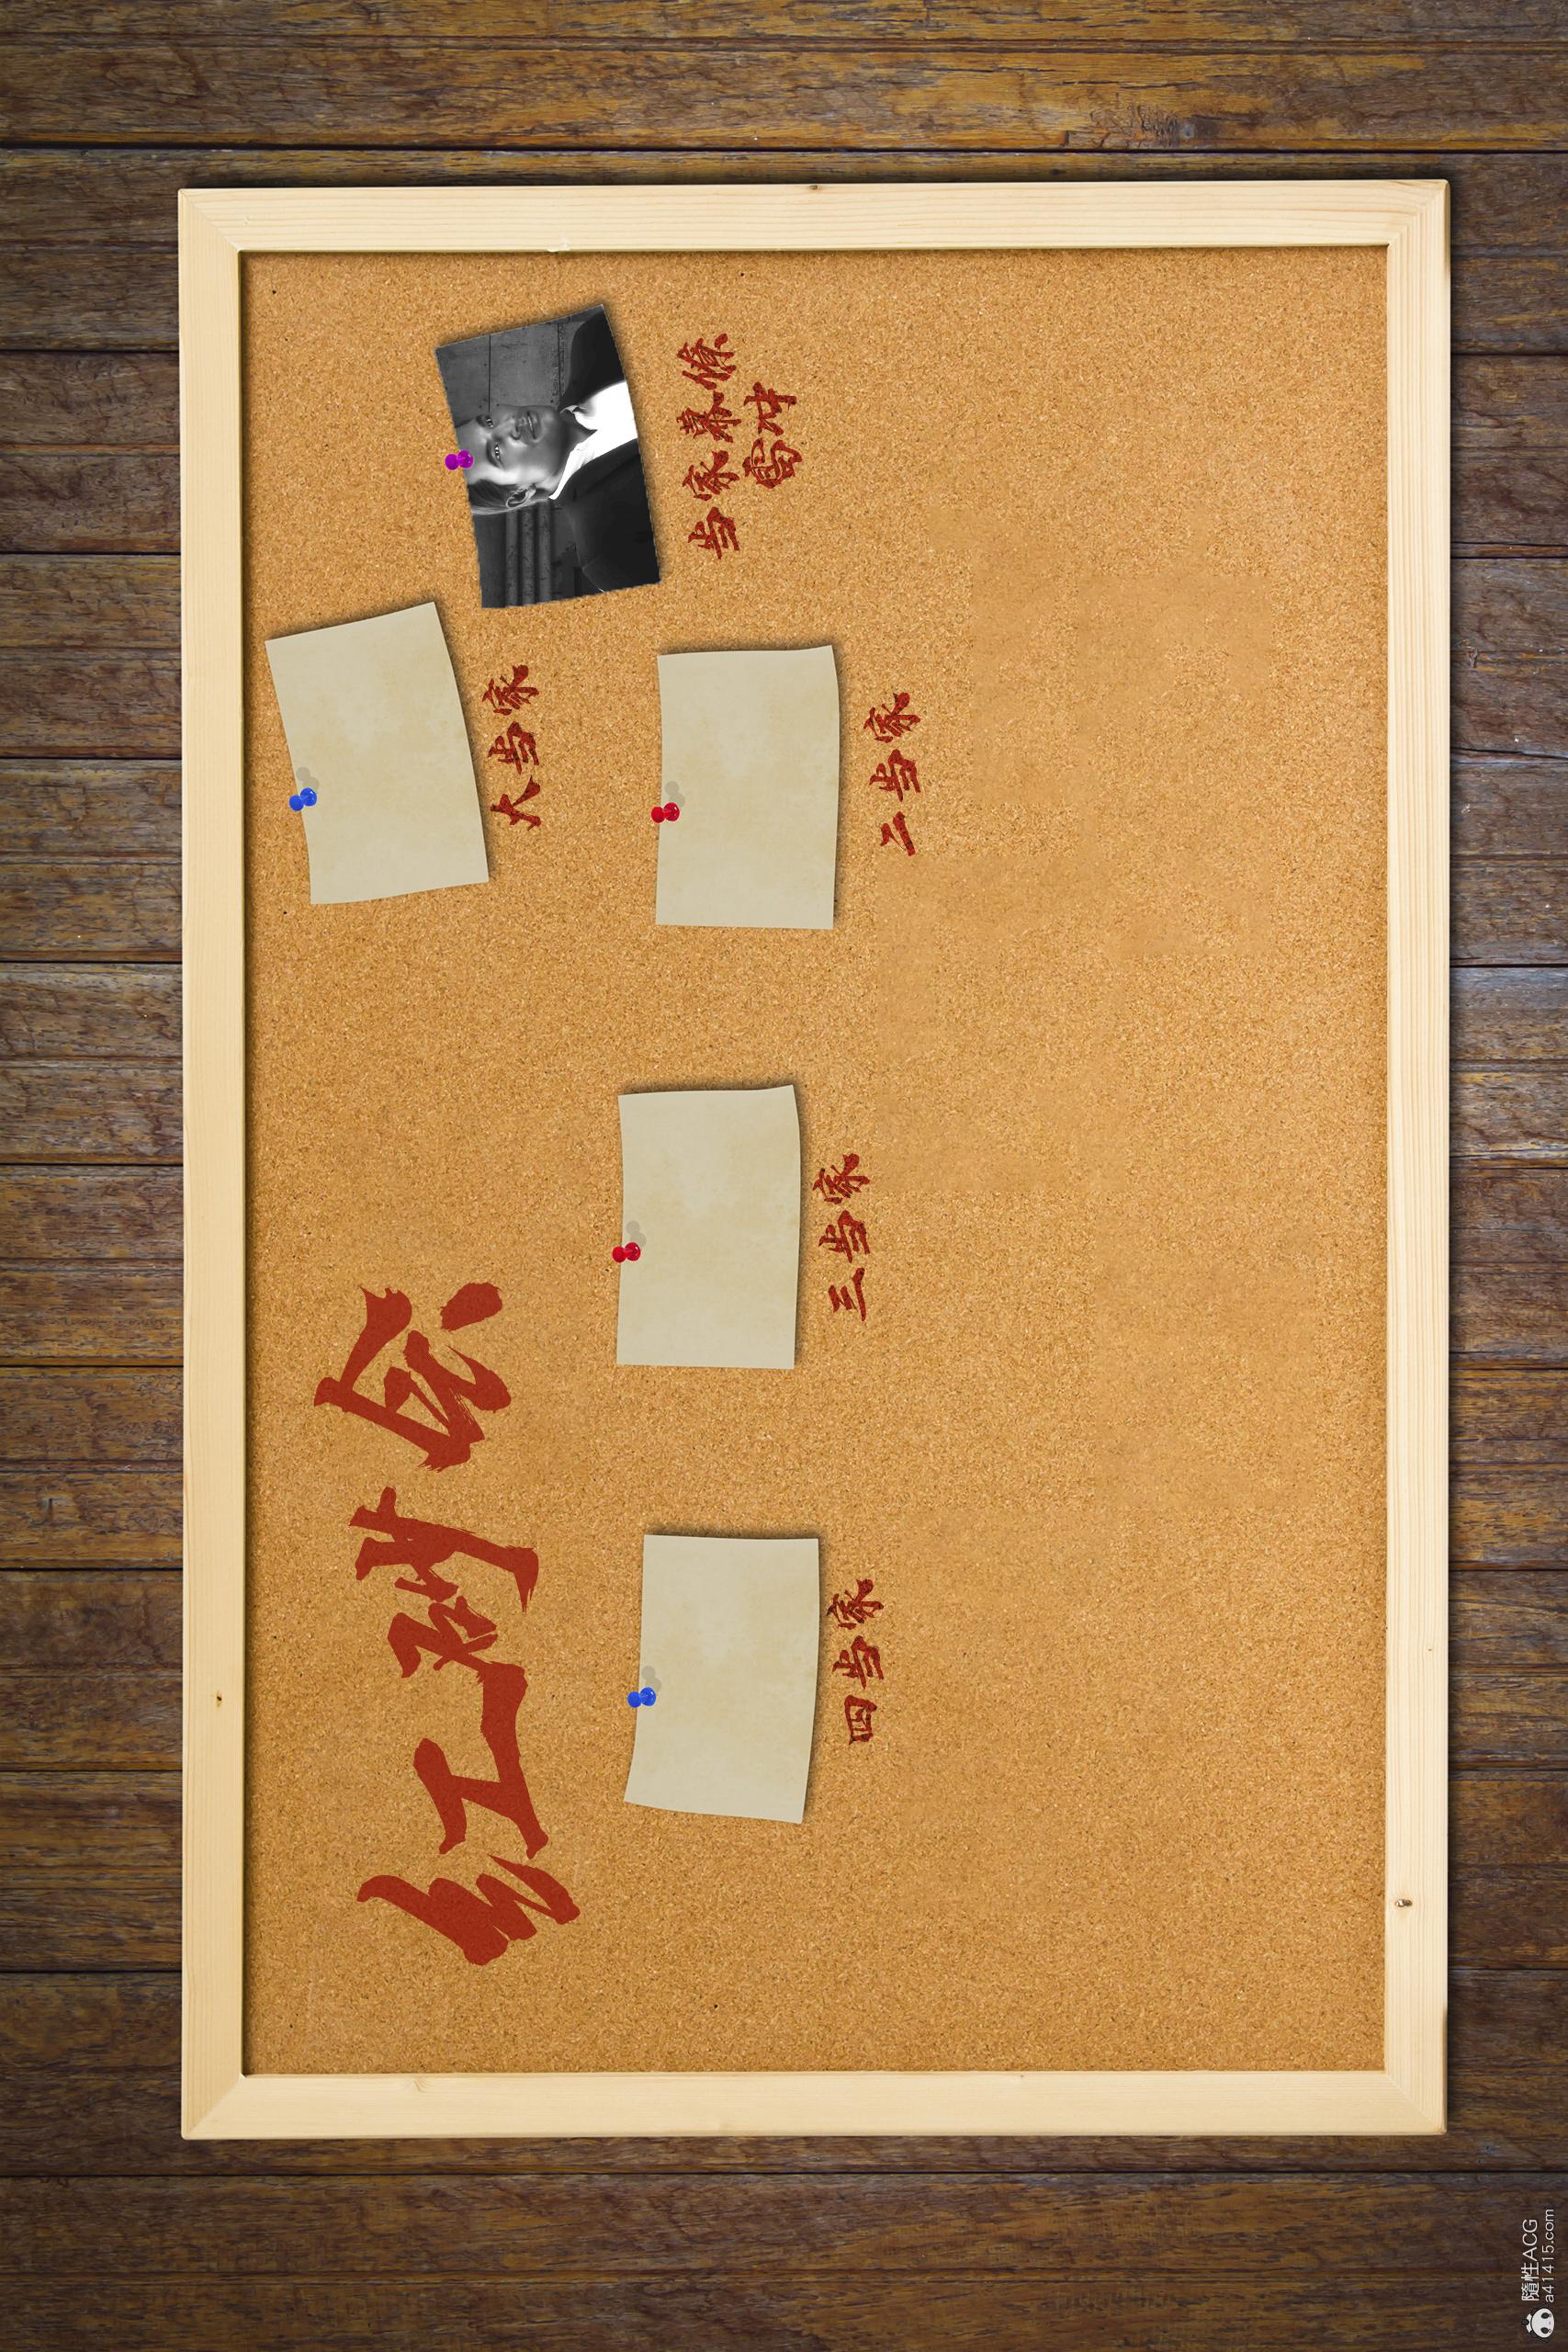 红树会
大当家
当家幕僚
雷冲
四当家
三当家
二当家
隨性ACG
a41415.com